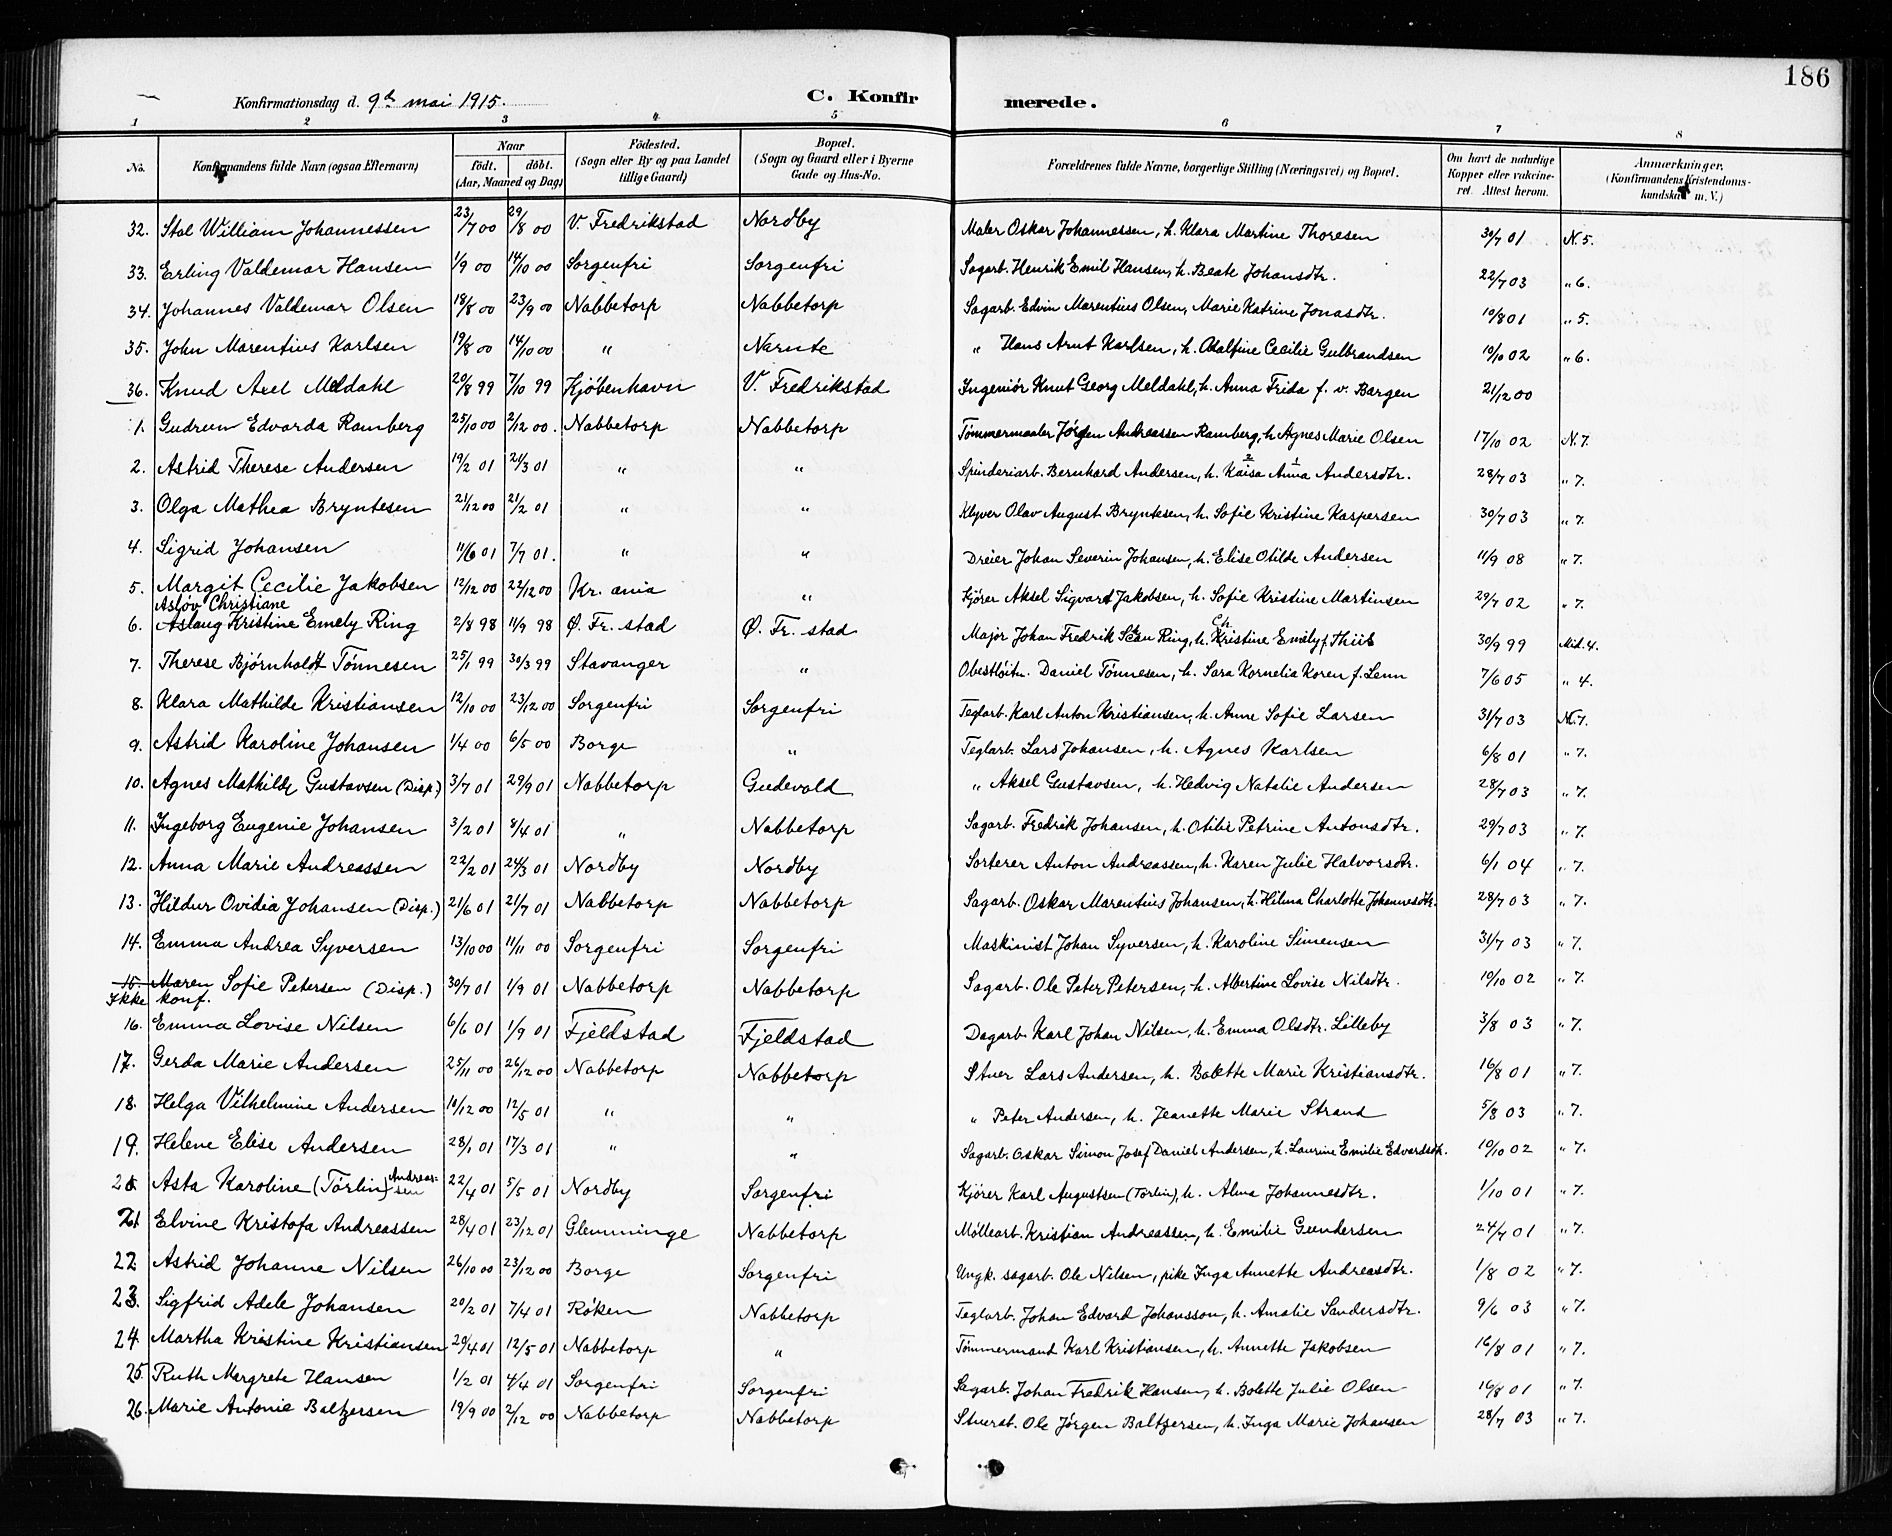 186
Konfirmationsdag d. 9de mai 1915. C. Konfirmerede.
1 2 3 4 5 6 7 8
No. Konfirmandens fulde Navn (ogsaa Efternavn) Naar født. døbt. (Aar, Maaned og Dag) Fødested. (Sogn eller By og paa Landet tillige Gaard) Bopæl. (Sogn og Gaard eller i Byerne Gade og Hus-No. Forældrenes fulde Navne, borgerlige Stilling (Næringsvei) og Bopæl. Om havt de naturlige Kopper eller vakcineret. Attest herom. Anmærkninger. (Konfirmandens Kristendomskundskab m. V.)
32. Stal William Johannessen 23/7 00 29/8 00 V. Fredrikstad Nordby Maler Oskar Johannessen, h. Klara Martine Thoresen 30/7 01 N. 5.
33. Erling Valdemar Hansen 1/9 00 14/10 00 Sorgenfri Sorgenfri Sagarb. Henrik Emil Hansen, h. Beate Johansdtr. 22/7 03 " 6.
34. Johannes Valdemar Olsen 18/8 00 23/9 00 Nabbetorp Nabbetorp Sagarb. Edvin Marentius Olsen, Marie Katrine Jonasdtr. 10/8 01 " 5.
35. John Marentius Karlsen 19/8 00 14/10 00 " Narnte " Hans Arnt Karlsen, h. Adolfine Cecilie Gulbrandsen 10/10 02 " 6.
36. Knud Axel Meldahl 20/8 99 7/10 99 Kjøbenhavn V. Fredrikstad Ingeniør Knut Georg Meldahl, h. Anna Frida f. v. Bargen 21/12 00
1. Gudrun Edvarda Ramberg 25/10 00 2/12 00. Nabbetorp Nabbetorp Tømmermaaler Jørgen Andreassen Ramberg, h. Agnes Marie Olsen 17/10 02 N. 7.
2. Astrid Therese Andersen 19/2 01 21/3 01 " " Spinderiarb. Bernhard Andersen, h. Kaisa 2 Anna 1 Andersdtr. 28/7 03 " 7.
3. Olga Mathea Bryntesen 21/12 00 21/2 01 " " Klyver Olav August Bryntesen, h. Sofie Kristine Kaspersen 30/7 03 " 7.
4. Sigrid Johansen 11/6 01 7/7 01. " " Dreier Johan Severin Johansen, h. Elise Otilde Andersen 11/9 08 " 7.
5. Margit Cecilie Jakobsen 12/12 00 22/12 00 Kr. ania " Kjører Aksel Sigvart Jakobsen, h. Sofie Kristine Martinsen 29/7 02 " 7.
Asløv Christiane
6. Aslaug Kristine Emely Ring 2/8 98 11/9 98 Ø. Fr. stad Ø. Fr. stad Major Johan Fredrik Ring, h. Ch. Kristine Emely f. Thiis 30/9 99 Mid. 4.
7. Therese Bjørnholdt Tønnesen 25/1 99 30/3 99 Stavanger " Obestløitn. Daniel Tønnesen, h. Sara Kornelia Koren f. Lenn 7/6 05 " 4.
8. Klara Mathilde Kristiansen 12/10 00 23/12 00 Sorgenfri Sorgenfri Teglarb. Karl Anton Kristiansen, h. Anne Sofie Larsen 31/7 03 N. 7.
9. Astrid Karoline Johansen 1/4 00 6/5 00 Borge " Teglarb. Lars Johansen, h. Agnes Karlsen 6/8 01 " 7.
10. Agnes Mathilde Gustavsen (Disp.) 3/7 01 29/9 01 Nabbetorp Gudevold " Aksel Gustavsen, h. Hedvig Natalie Andersen 28/7 03 " 7.
11. Ingeborg Eugenie Johansen 3/2 01 8/4 01 " Nabbetorp Sagarb. Fredrik Johansen, h. Otilie Petrine Antonsdtr. 29/7 03 " 7.
12. Anna Marie Andreassen 22/2 01 24/3 01 Nordby Nordby Sorterer Anton Andreassen, h. Karen Julie Halvorsdtr. 6/1 04 " 7.
13. Hildur Ovidia Johansen (Disp.) 21/6 01 21/7 01 Nabbetorp Nabbetorp Sagarb. Oskar Marentius Johansen, h. Hilma Charlotte Johannesdtr. 28/7 03 " 7.
14. Emma Andrea Syversen 13/10 00 11/11 00 Sorgenfri Sorgenfri Maskinist Johan Syversen, h. Karoline Simensen 31/7 03 " 7.
15. Maren Sofie Petersen (Disp.) 30/7 01 1/9 01 Nabbetorp Nabbetorp Sagarb. Ole Peter Petersen, h. Albertine Lovise Nilsdtr. 10/10 02 " 7.
Ikke konf.
16. Emma Lovise Nilsen 6/6 01 1/9 01 Fjeldstad Fjeldstad Dagarb. Karl Johan Nilsen, h. Emma Olsdtr. Lilleby 3/8 03 " 7.
17. Gerda Marie Andersen 25/11 00 26/12 00 Nabbetorp Nabbetorp Stuer Lars Andersen, h. Bolette Marie Kristiansdtr. 16/8 01 " 7.
18. Helga Vilhelmine Andersen 10/12 00 12/5 01 " " " Peter Andersen, h. Jeanette Marie Strand 5/8 03 " 7.
19. Helene Elise Andersen 28/1 01 17/3 01 " " Sagarb. Oskar Simon Josef Daniel Andersen, h. Laurine Emilie Edvardsdtr. 10/10 02 " 7.
20. Asta Karoline (Tørlin) Andreassen 22/4 01 5/5 01 Nordby Sorgenfri Kjører Karl Augustsen (Tørlin), h. Alma Johannesdtr. 1/10 01 " 7.
21 Elvine Kristofa Andreassen 28/4 01 23/12 01 Glemminge Nabbetorp Møllearb. Kristian Andreassen, h. Emilie Gundersen 24/7 01 " 7.
22 Astrid Johanne Nilsen 26/10 00 23/12 00 Borge Sorgenfri Ungk. sagarb. Ole Nilsen, pike Inga Annette Andreasdtr. 1/8 02 " 7.
23. Sigfrid Adele Johansen 20/2 01 7/4 01 Røken Nabbetorp Teglarb. Johan Edvard Johansson, h. Amalie Sandersdtr. 9/6 03 " 7.
24. Martha Kristine Kristiansen 20/4 01 12/5 01 Nabbetorp " Tømmermand Karl Kristiansen, h. Annette Jakobsen 16/8 01 " 7.
25. Ruth Margrete Hansen 1/2 01 4/4 01 Sorgenfri Sorgenfri Sagarb. Johan Fredrik Hansen, h. Bolette Julie Olsen 16/8 01 " 7.
26. Marie Antonie Baltzersen 19/9 00 2/12 00 Nabbetorp Nabbetorp Stuerarb. Ole Jørgen Baltzersen, h. Inga Marie Johansen 28/7 03 " 7.